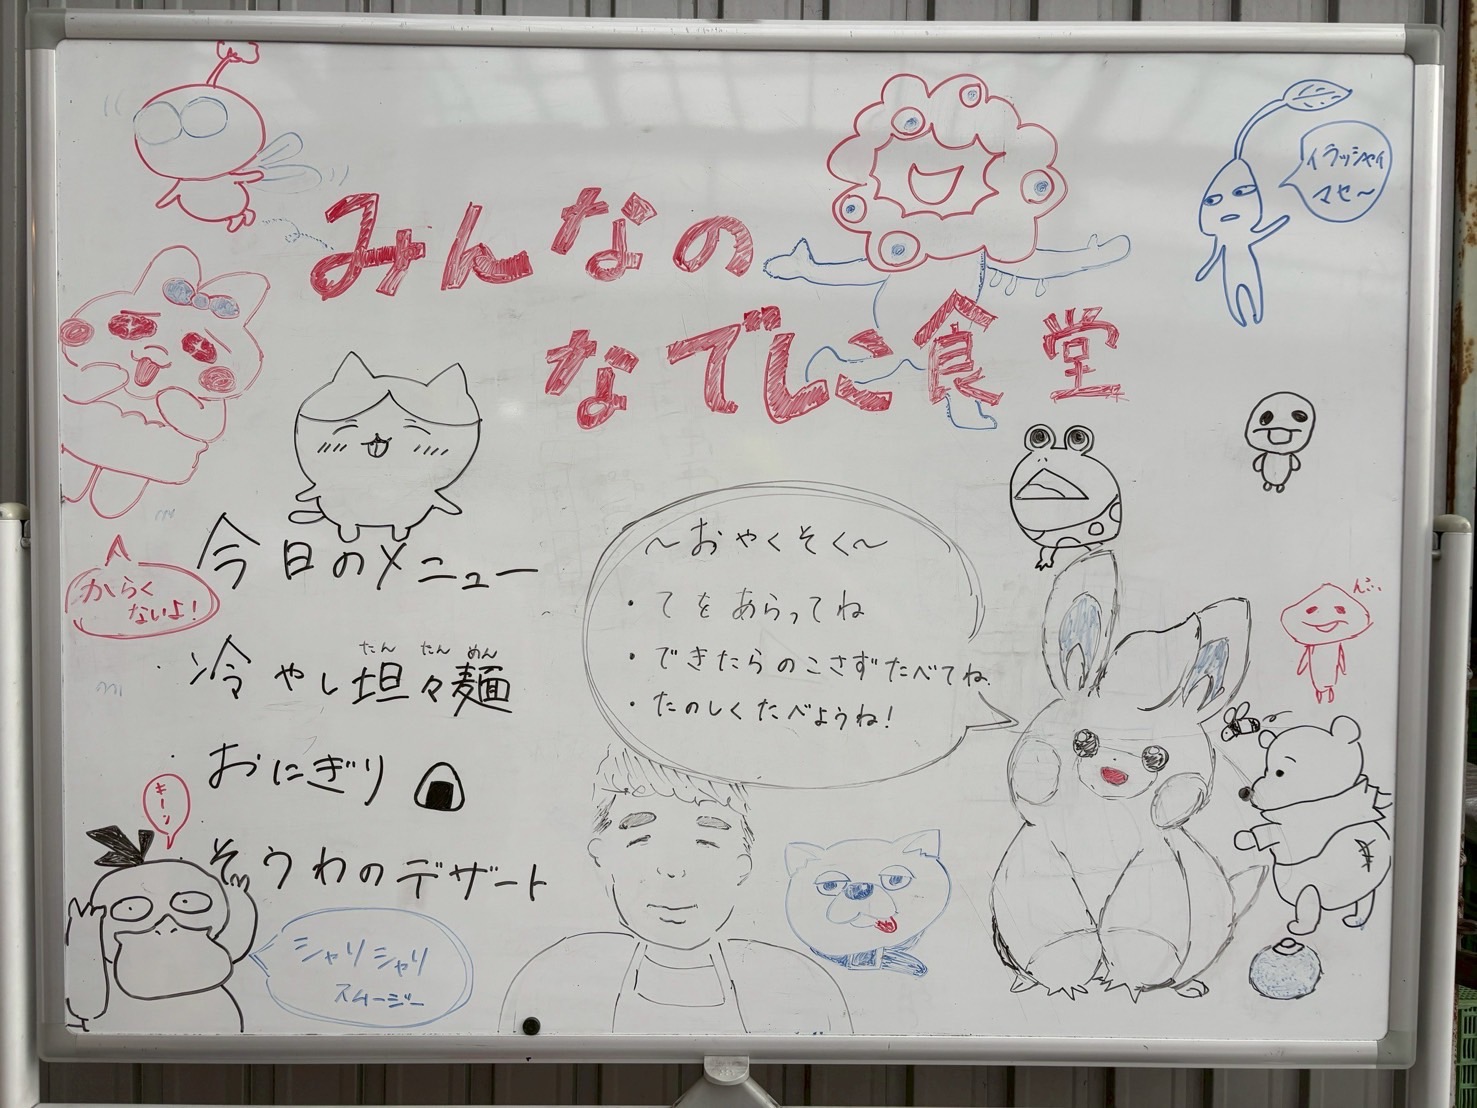 みんなの
なでしこ食堂
イラッシャイ
マセ〜
今日のメニュー
からく
ないよ!
たん たん めん
冷やし坦々麺
おにぎり
そうわのデザート
キーン
シャリシャリ
スムージー
〜おやくそく〜
・てをあらってね
・できたらのこさずたべてね
・たのしくたべようね!